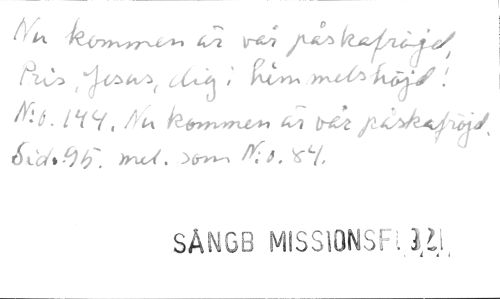 Nu kommen är vår påskafröjd,
Pris, Jesus, dig i himmelshöjd!
N:o. 144. Nu kommen är vår påskafröjd.
Sid. 95. mel. som N:o. 84.
SÅNGB MISSIONSF